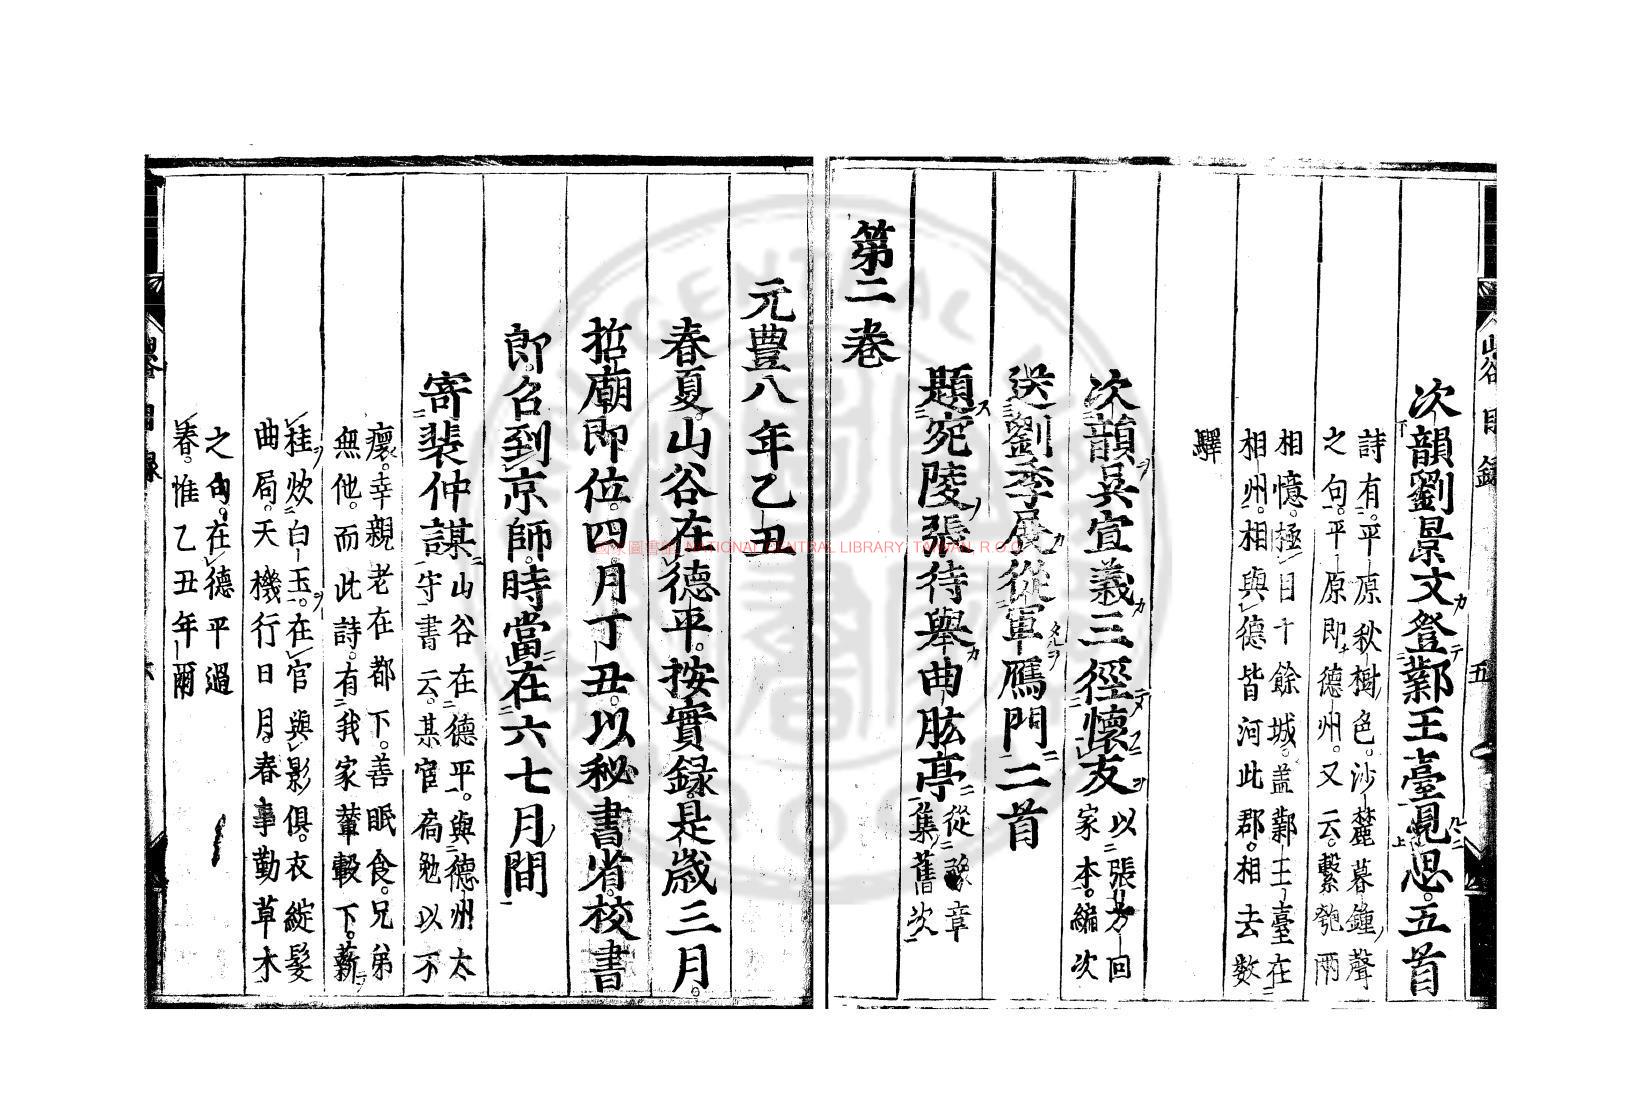 次韻劉景文登鄴王臺見思五首
詩有平原秋樹色沙麓暮鐘聲
之句平原即德州又云繫匏兩
相憶極目十餘城蓋鄴王臺在
相州相與德皆河北郡相去數
驛
次韻吳宣義三徑懷友
以張方回
家本編次
送劉季展從軍鴈門二首
題宛陵張待舉曲肱亭
從豫章
集舊次
第二卷
元豊八年乙丑
春夏山谷在德平按實録是歲三月
哲廟即位四月丁丑以秘書省校書
郎召到京師時當在六七月間
寄裴仲謀
山谷在德平與德州太
守書云某官局勉以不
癏幸親老在都下善眠食兄弟
無他而此詩有我家輦轂下薪
桂炊白玉在官與影俱衣綻髮
曲局天機行日月春事勤草木
之句在德平過
春惟乙丑年爾
山谷目録
五
國家圖書館 NATIONAL CENTRAL LIBRARY, TAIWAN R O C